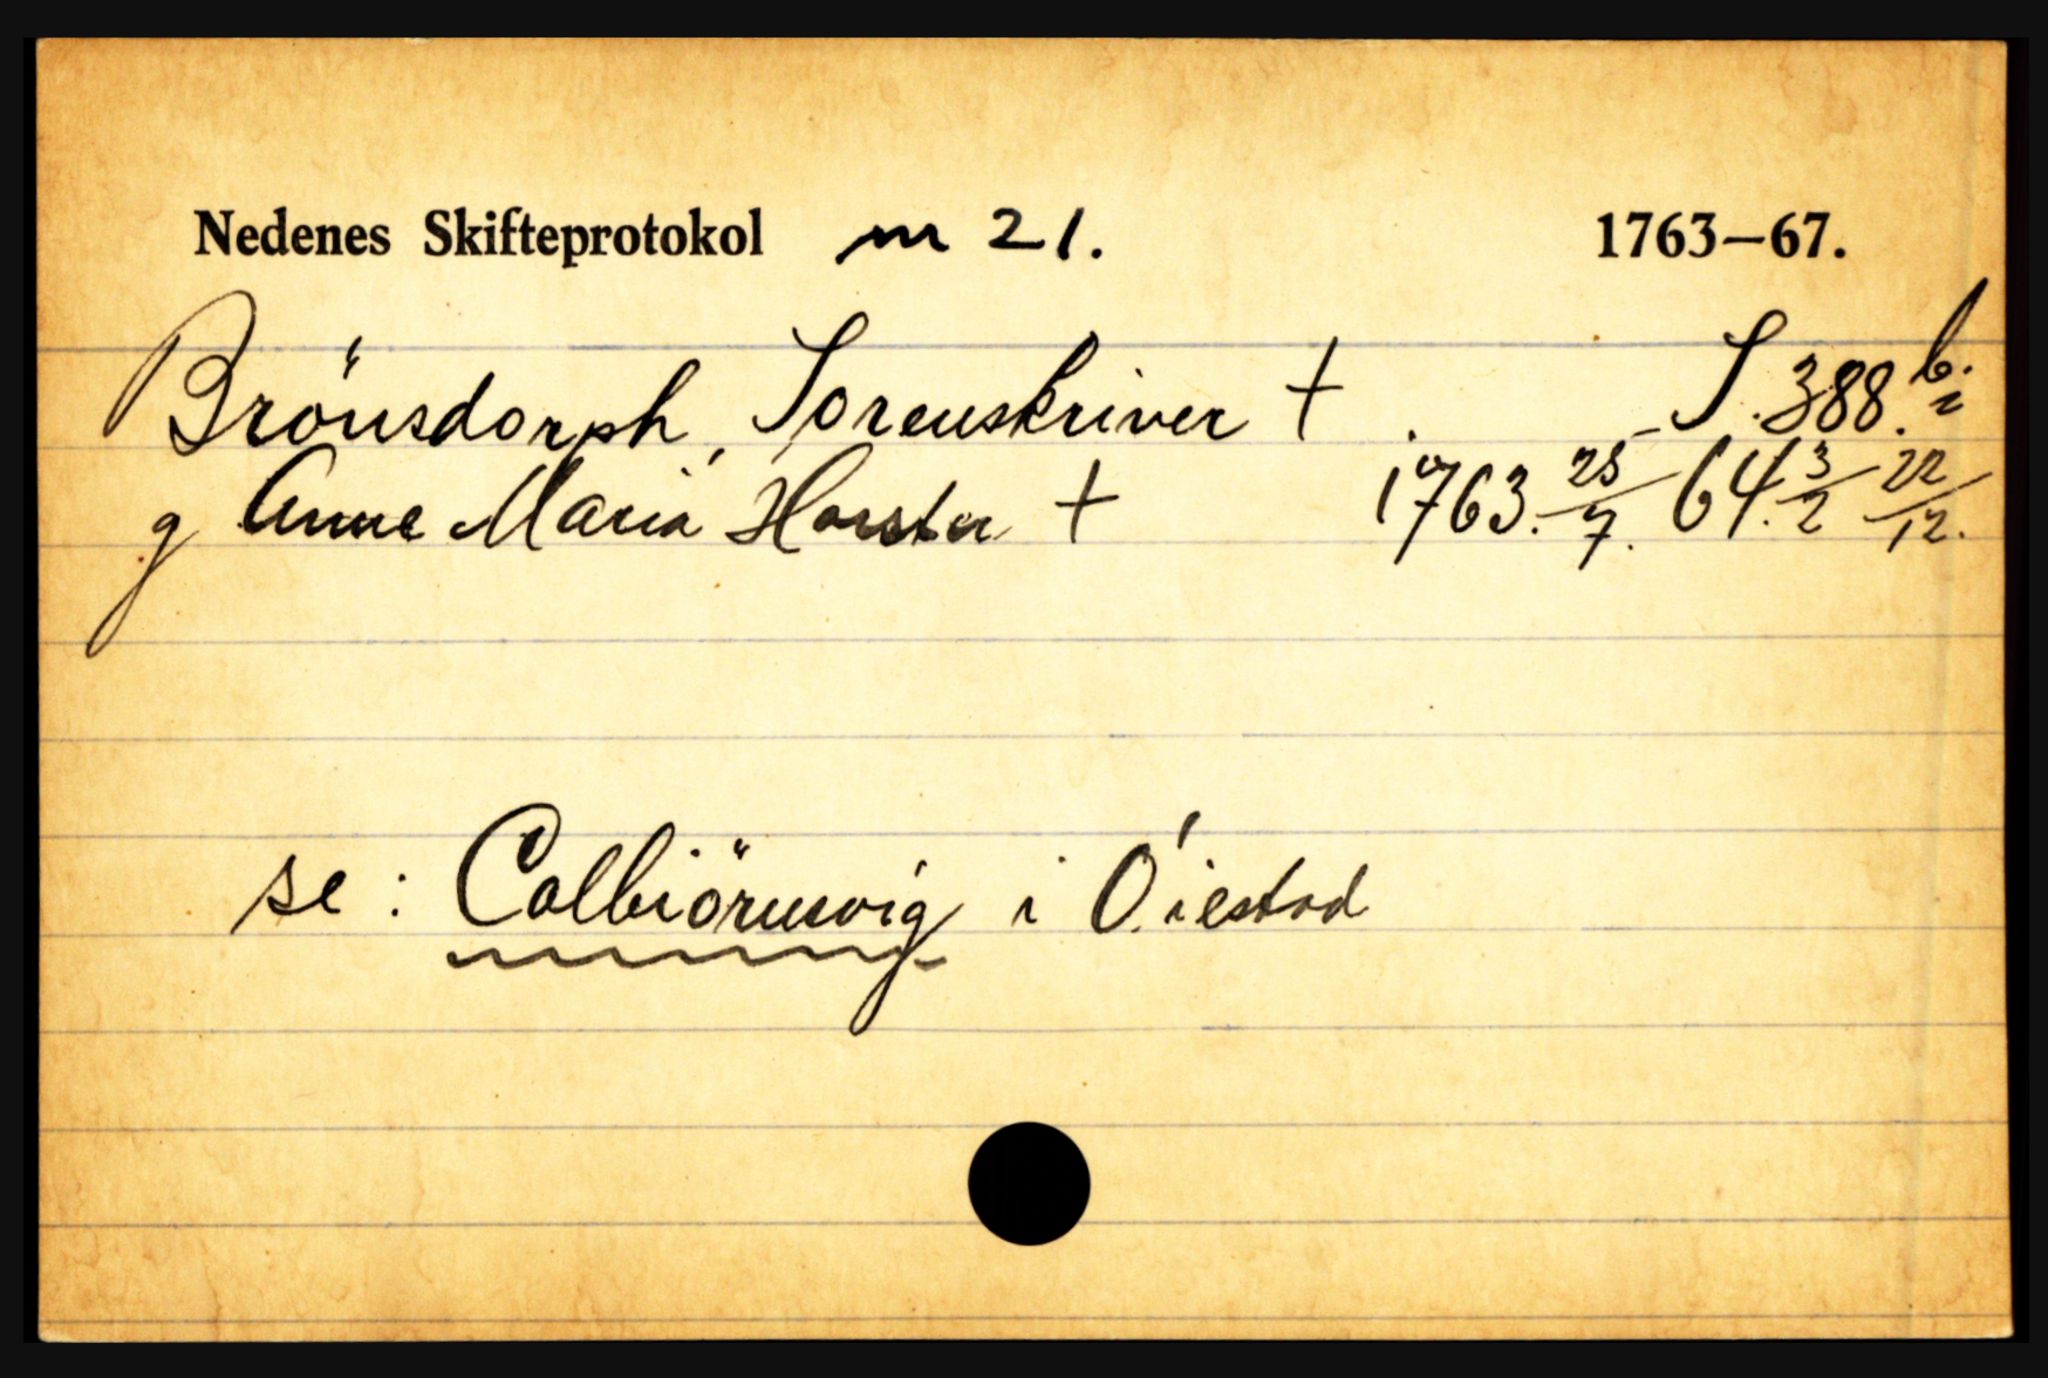 Nedenes Skifteprotokol nr 21. 1763–67.
Brönsdorph, Sorenskriver † S. 388.b.
g Anne Maria Horster † 1763. 25/7. 64. 3/2 22/12.
se: Colbiörnsvig i Öiestad